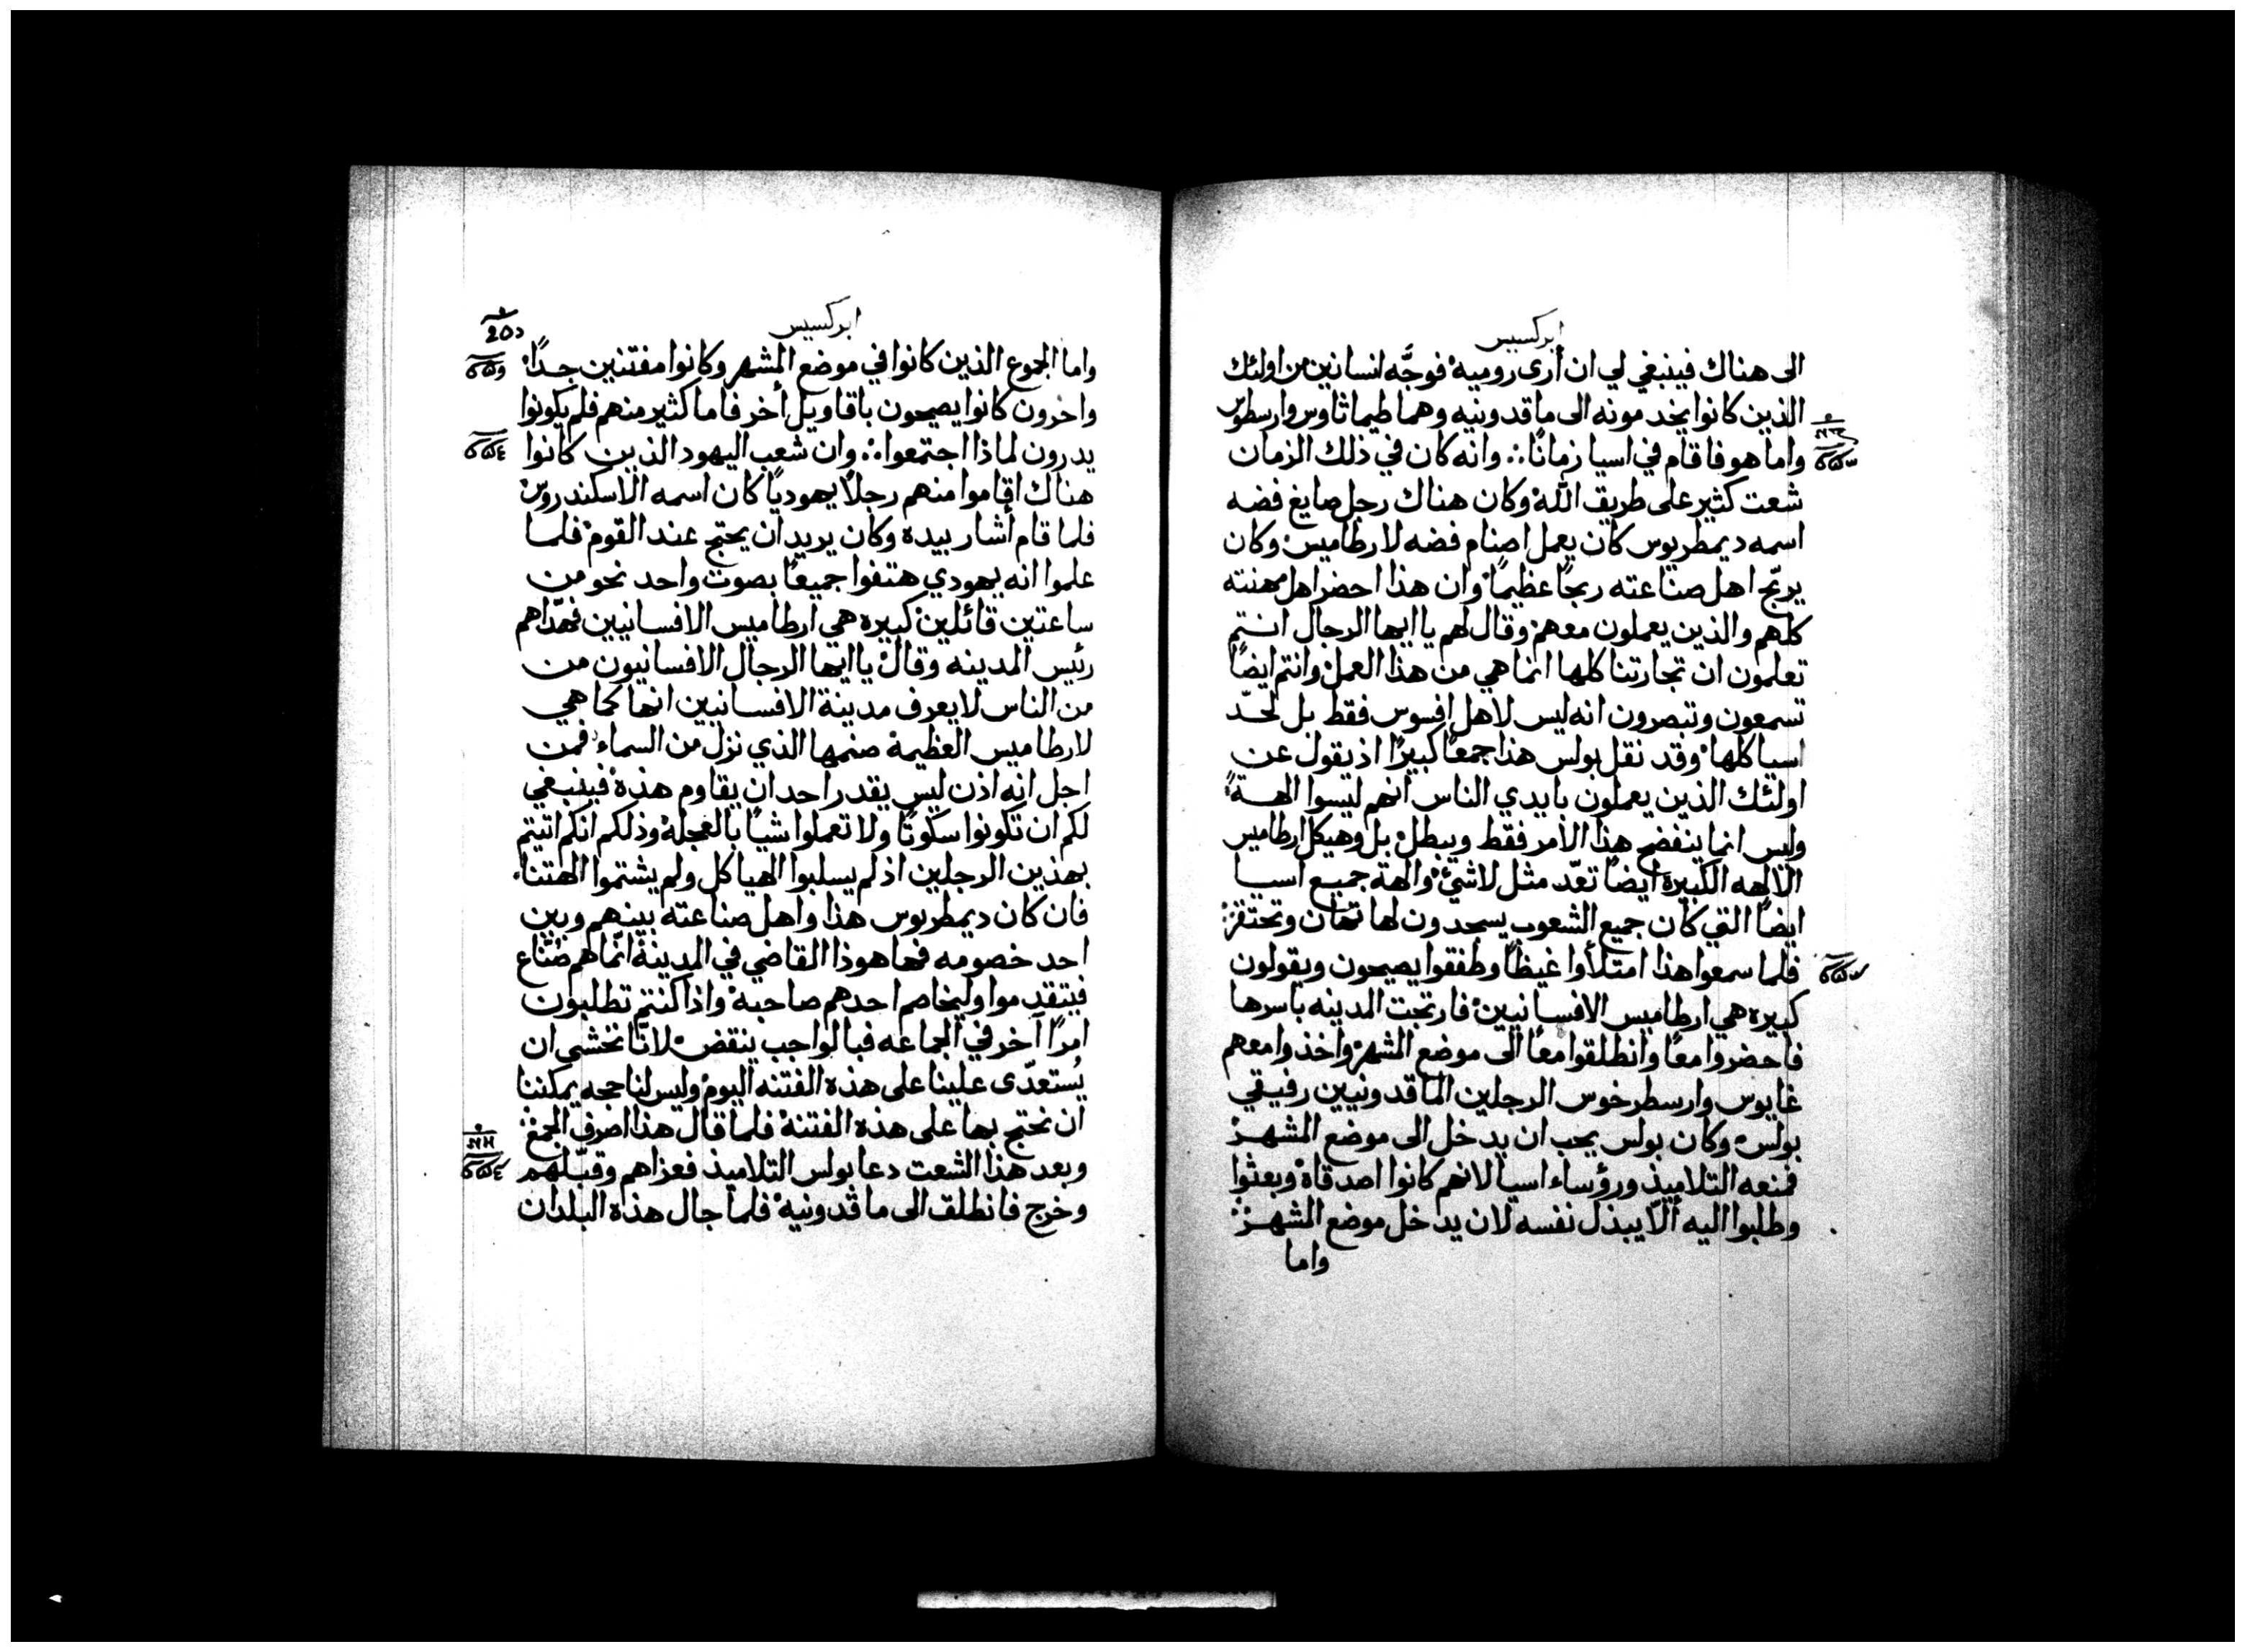 ابركسيس
الى هناك فينبغي لي ان أرى روميه فوجَّه انسانين من اولئك
الذين كانوا يخدمونه الى ماقدونيه وهما طيماثاوس وارسطوس
واما هو فاقام في اسيا زمانًا ∴ وانه كان في ذلك الزمان
شعت كثير على طريق الله وكان هناك رجل صايغ فضه
اسمه ديمطريوس كان يعمل اصنام فضه لارطاميس وكان
يربّح اهل صناعته ربحًا عظيمًا وان هذا احضر اهل مهنته
كلهم والذين يعملون معهم وقال لهم يا ايها الرجال انتم
تعلمون ان تجارتنا كلها انما هي من هذا العمل وانتم ايضًا
تسمعون وتبصرون انه ليس لاهل افسوس فقط بل لحدّ
اسيا كلها وقد نقل بولس هذا جمعًا كبيرًا اذ يقول عن
اولئك الذين يعملون بايدي الناس انهم ليسوا الهةً
وليس انما ينفضح هذا الأمر فقط ويبطل بل وهيكل ارطاميس
الالهه الكبيرة ايضًا تعدّ مثل لاشئ والهة جميع اسيا
ايضًا التي كان جميع الشعوب يسجدون لها تهان وتحتقر
فلما سمعوا هذا امتلأوا غيظًا وطفقوا يصيحون ويقولون
كبيره هي ارطاميس الافسانيين فارتجت المدينه باسرها
فاحضروا معًا وانطلقوا معًا الى موضع المشهر واخذوا معهم
غايوس وارسطرخوس الرجلين الماقدونيين رفيقي
بولس وكان بولس يحب ان يدخل الى موضع المشهر
فمنعه التلاميذ ورؤساء اسيا لانهم كانوا اصدقاة وبعثوا
وطلبوا اليه ألّا يبذل نفسه لان يدخل موضع المشهر
واما
ابركسيس
واما الجموع الذين كانوا في موضع المشهر وكانوا مفتنين جدًا
واخرون كانوا يصيحون باقاويل أخر فاما كثير منهم فلم يكونوا
يدرون لماذا اجتمعوا ∴ وان شعب اليهود الذين كانوا
هناك اقاموا منهم رجلًا يهوديًا كان اسمه الاسكندروس
فلما قام أشار بيده وكان يريد ان يحتج عند القوم فلما
علموا انه يهودي هتفوا جميعًا بصوت واحد نحو من
ساعتين قائلين كبيره هي ارطاميس الافسانيين فهدّاهم
رئيس المدينه وقال يا ايها الرجال الافسانيون من
من الناس لا يعرف مدينة الافسانيين انها كما هي
لارطاميس العظيمة صنمها الذي نزل من السماء فمن
اجل انه اذن ليس يقدر احد ان يقاوم هذه فينبغي
لكم ان تكونوا سكوتًا ولا تعملوا شيًا بالعجلة وذلكم انكم اتيتم
بهذين الرجلين اذ لم يسلبوا الهياكل ولم يشتموا الهتنا
فان كان ديمطريوس هذا واهل صناعته بينهم وبين
احد خصومه فها هوذا القاضي في المدينة انّما هم صُنّاع
فيتقدموا وليخاصم احدهم صاحبة واذا كنتم تطلبون
امرًا آخر في الجماعه فبالواجب ينقض لانّا نخشى ان
يُستعدّى علينا على هذه الفتنه اليوم وليس لنا حجه يمكننا
ان نحتج بها على هذه الفتنة فلما قال هذا اصرف الجمع
وبعد هذا الشعت دعا بولس التلاميذ فعزاهم وقبّلهم
وخرج فانطلق الى ماقدونيه فلما جال هذه البلدان